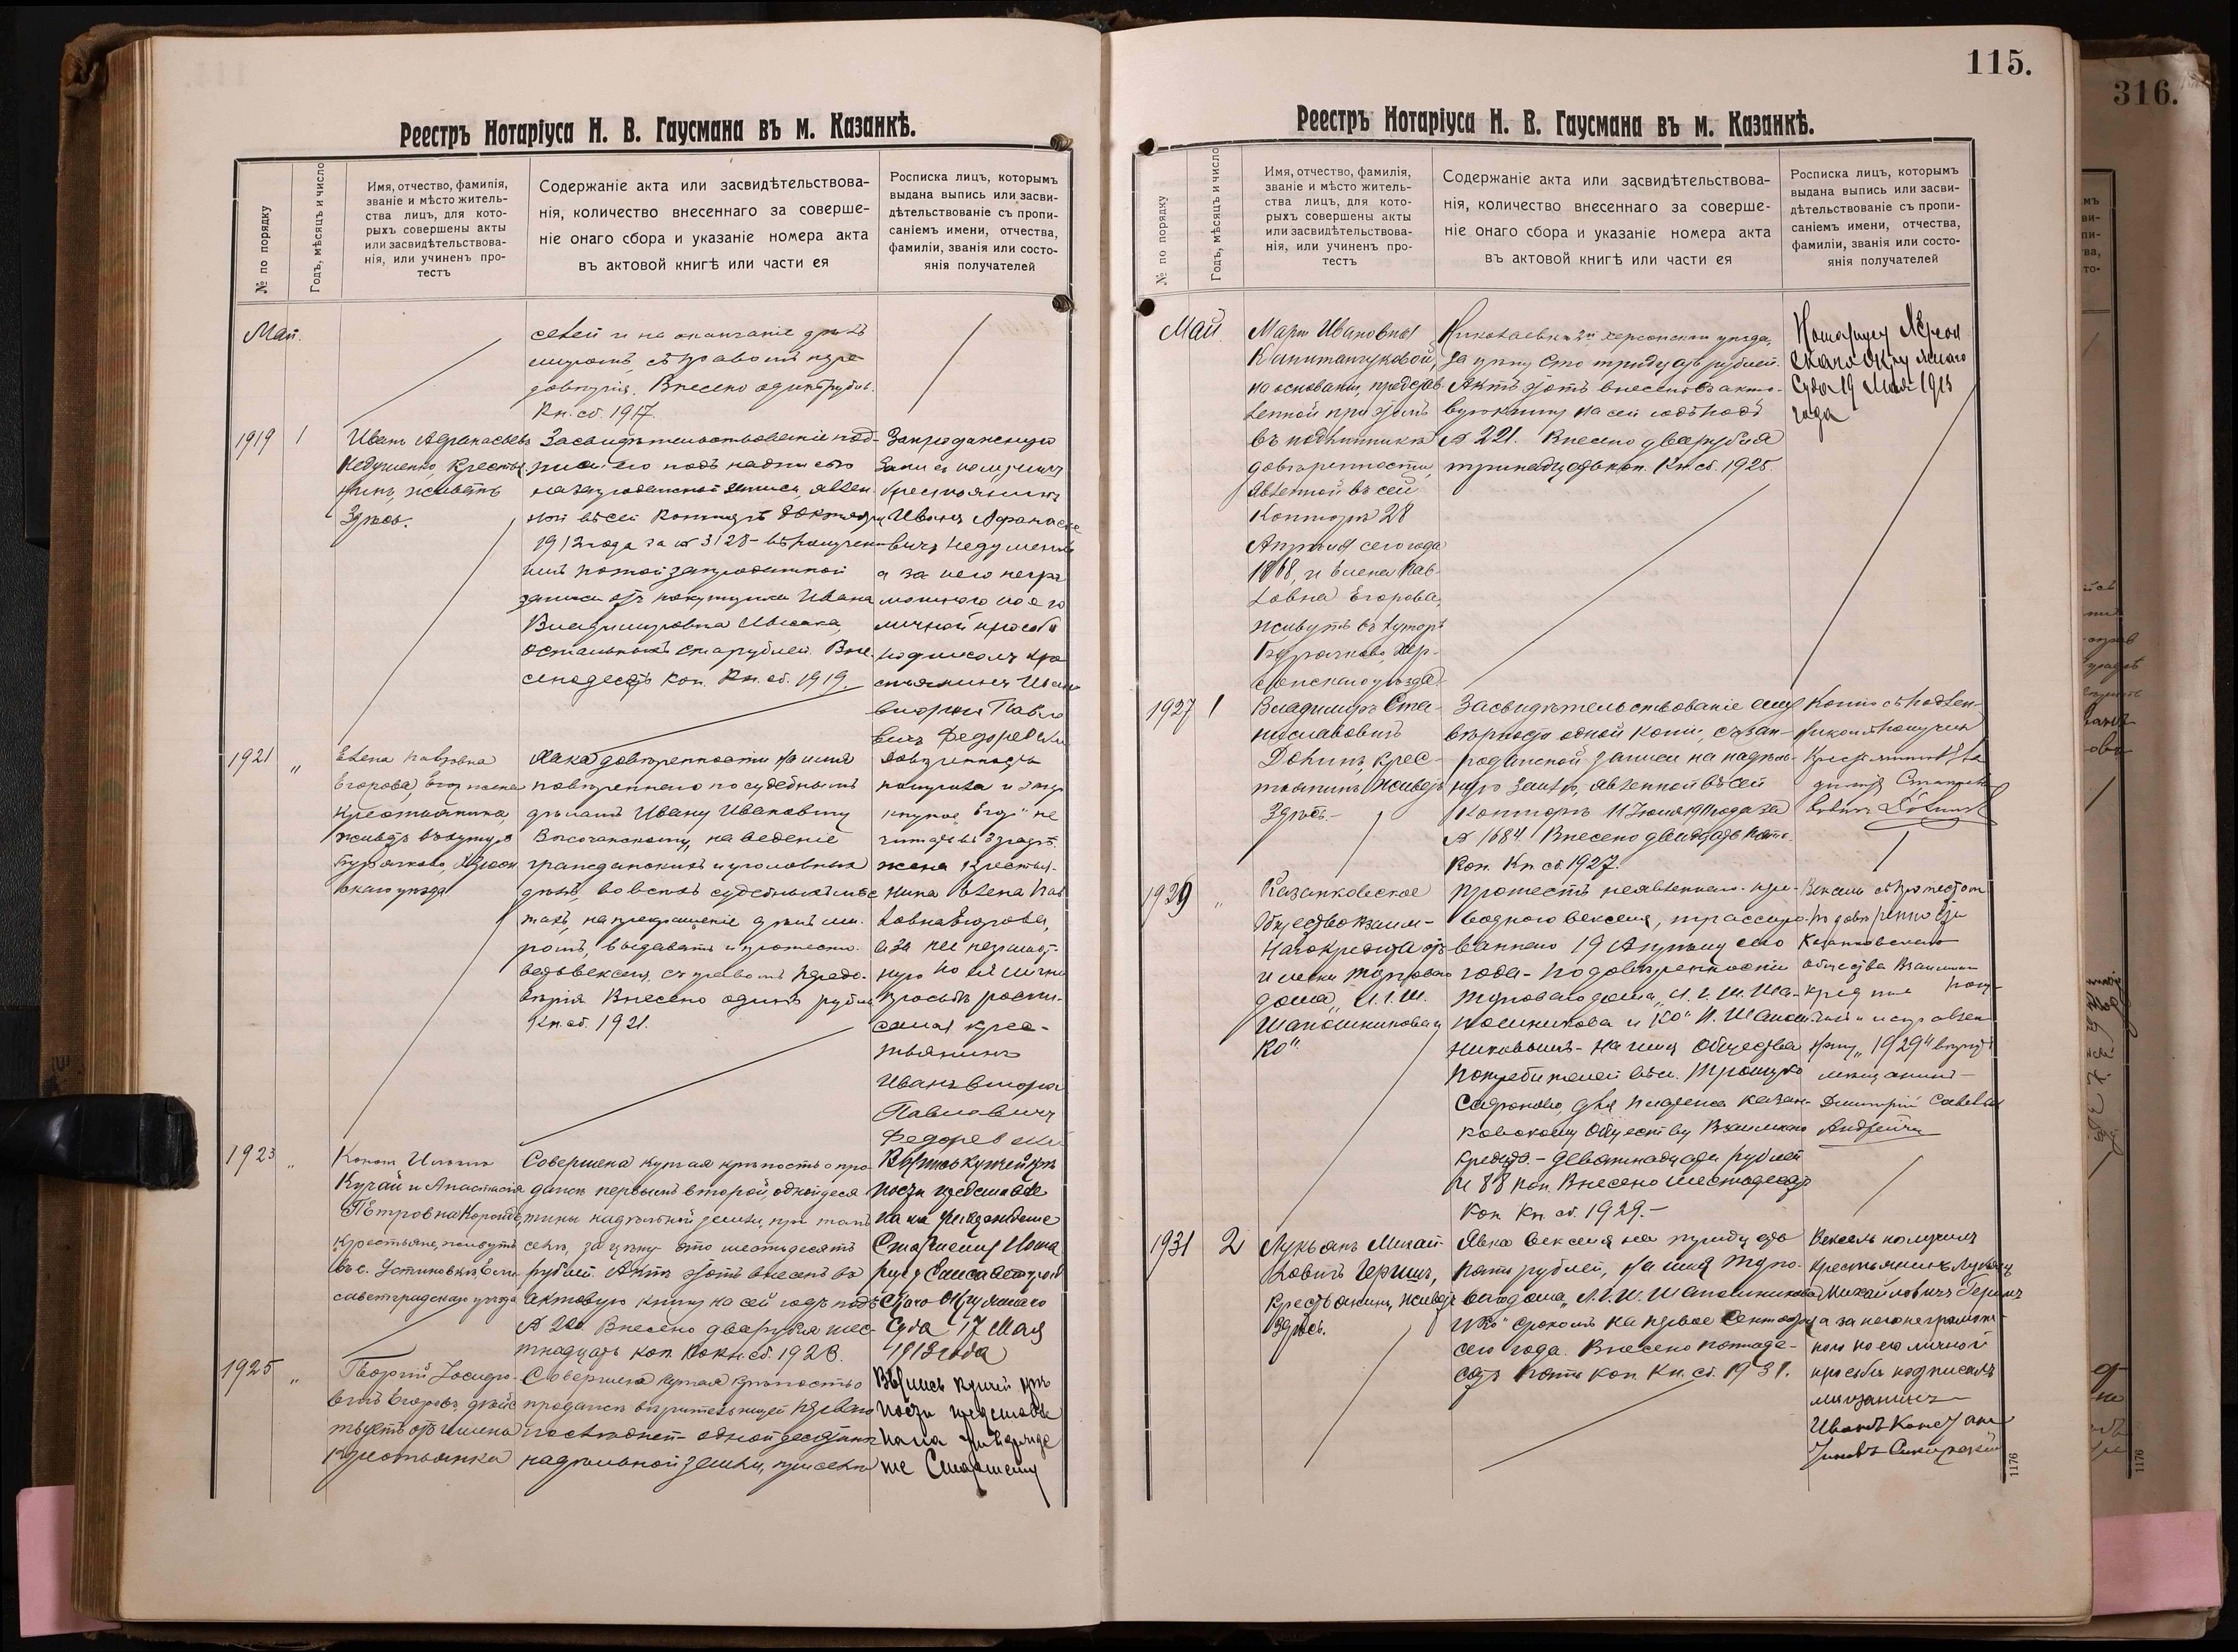 Реестръ Нотаріуса Н. В. Гаусмана въ м. Казанкѣ.
№ по порядку
Годъ, мѣсяцъ и число
Имя, отчество, фамилія,
званіе и мѣсто житель-
ства лицъ, для кото-
рыхъ совершены акты
или засвидѣтельствова-
нія, или учиненъ про-
тестъ
Содержаніе акта или засвидѣтельствова-
нія, количество внесеннаго за соверше-
ніе онаго сбора и указаніе номера акта
въ актовой книгѣ или части ея
Росписка лицъ, которымъ
выдана выпись или засви-
дѣтельствованіе съ пропи-
саніемъ имени, отчества,
фамиліи, званія или состо-
янія получателей
Май.
сетей и на окончаніе дѣлъ
миромъ, съ правомъ пере-
довѣрія. Внесено одинъ рубль.
Кн. сб. 1917.
1919
1
Иванъ Афанасьевъ
Недушенко, крестья-
нинъ, живетъ
Здѣсь.
Засвидѣтельствованіе под-
писи его подъ надписью
на запродажной записи, явлен-
ной въ сей Конторѣ Октября
1912 года за № 3128 - въ получен-
іи по этой запродажной
записи отъ покупщика Ивана
Владимировича
остальныхъ ста рублей. Вне-
сено десять коп. Кн. сб. 1919.
Запродажную
запись получилъ
Крестьянинъ
Иванъ Афанасье-
вичъ Недушенко
а за него негра-
мотнаго по его
личной просьбѣ
подписалъ кре-
стьянинъ Иванъ
Павло
вичъ Федоре
1921
"
Елена Павловна
Егорова, жена
крестьянина,
живетъ въ хуторѣ
Херсон
скаго уѣзда.
Явка довѣренности на имя
повѣреннаго по судебнымъ
дѣламъ Ивану Ивановичу
Височанскому, на веденіе
гражданскихъ и уголовныхъ
дѣлъ, во всѣхъ судебныхъ мѣс-
тахъ, на прекращеніе дѣлъ ми-
ромъ, выдавать и протесто-
вать векселя, съ правомъ передо-
вѣрія. Внесено одинъ рубль
Кн. сб. 1921.
Довѣренность
получила
жена крестья-
нина Елена Пав
ловна Егорова,
а за нее неграмот-
ную по ея личной
просьбѣ распи-
сался крес-
тьянинъ
Иванъ
Павловичъ
Федорев
1923
"
Кучай и Анастасія
Петровна
крестьяне, живутъ
въ с. Устиновкѣ Ели
саветградскаго уѣзда
Совершена купчая крѣпость о про-
дажѣ первымъ второй, одной деся-
тины надѣльной земли, при томъ
селѣ, за цѣну сто шестьдесятъ
рублей. Актъ этотъ внесенъ въ
актовую книгу на сей годъ подъ
№ 220. Внесено два рубля шес-
тнадцать коп. Кн. сб. 1923.
Выпись купчей крѣ
пости представле
на на утвержденіе
Старшему Нота
ріусу Елисаветград
скаго Окружнаго
Суда 17 Мая
1913 года
1925
"
Георгій
вичъ Егоровъ, дѣйс
твуетъ отъ имени
крестьянки
Совершена купчая крѣпость о
продажѣ вѣрительницей первою
последней - одной десятины
надѣльной земли, при селѣ
Выпись купчей крѣ
пости представле
на на утвержде
ніе Старшему
115.
Реестръ Нотаріуса Н. В. Гаусмана въ м. Казанкѣ.
№ по порядку
Годъ, мѣсяцъ и число
Имя, отчество, фамилія,
званіе и мѣсто житель-
ства лицъ, для кото-
рыхъ совершены акты
или засвидѣтельствова-
нія, или учиненъ про-
тестъ
Содержаніе акта или засвидѣтельствова-
нія, количество внесеннаго за соверше-
ніе онаго сбора и указаніе номера акта
въ актовой книгѣ или части ея
Росписка лицъ, которымъ
выдана выпись или засви-
дѣтельствованіе съ пропи-
саніемъ имени, отчества,
фамиліи, званія или состо-
янія получателей
Май.
Маріи Ивановны
Капитанчуковой,
на основаніи, представ-
ленной при этомъ
въ подлинникѣ
довѣренности,
явленной въ сей
Конторѣ 28
Апрѣля сего года
1868, и Елена Пав-
ловна Егорова,
живутъ въ хуторѣ
Хер-
сонскаго уѣзда.
Николаевкѣ 2й Херсонскаго уѣзда,
за цѣну сто тридцать рублей.
Актъ этотъ внесенъ въ акто-
вую книгу на сей годъ подъ
№ 221. Внесено два рубля
тринадцать коп. Кн. сб. 1925.
Нотаріусу Херсон
скаго Окружнаго
Суда 19 Мая 1913
года
1927
1
Владимиръ Ста-
ниславовичъ
крес-
тьянинъ, живетъ
Здѣсь.
Засвидѣтельствованіе ему
вѣрности одной копіи, съ зап-
родажной записи на надѣль-
ную землю, явленной въ сей
Конторѣ 11 Іюня 1911 года за
№ 1684. Внесено двадцать пять
коп. Кн. сб. 1927.
Копію съ подлин-
никомъ получилъ
Крестьянинъ Вла
диміръ Станисла
1929
"
Казанковское
Общество Взаим-
наго кредита отъ
имени торговаго
дома „И. І. Ш.
Шапошникова и
Ко".
Протестъ неявленнаго пере-
воднаго векселя, трассиро-
ваннаго 19 Апрѣля сего
года - по довѣренности
торговаго дома „И. І. Ш. Ша-
пошникова и Ко" И. Шапош-
никовымъ - на имя Общества
потребителей въ с. Троицко
Сафоново, для платежа Казан-
ковскому Обществу Взаимнаго
Кредита. - девятнадцать рублей
и 88 коп. Внесено шестьдесятъ
коп. Кн. сб. 1929.-
Вексель съ протестомъ
по довѣренности
Казанковскаго
общества Взаимнаго
1929"
мѣщанинъ
Дмитрій
1931
2
Лукьянъ Михай-
ловичъ Герцикъ,
крестьянинъ, живетъ
Здѣсь.
Явка векселя на тридцать
пять рублей, на имя торго-
ваго дома „И. І. Ш. Шапошникова
и Ко" срокомъ на первое Сентября
сего года. Внесено пятьде-
сятъ пять коп. Кн. сб. 1931.
Вексель получилъ
крестьянинъ Лукьянъ
Михайловичъ Герцикъ
а за него неграмот-
наго по его личной
просьбѣ подписалъ
мѣщанинъ
Иванъ
1176
316.
1176